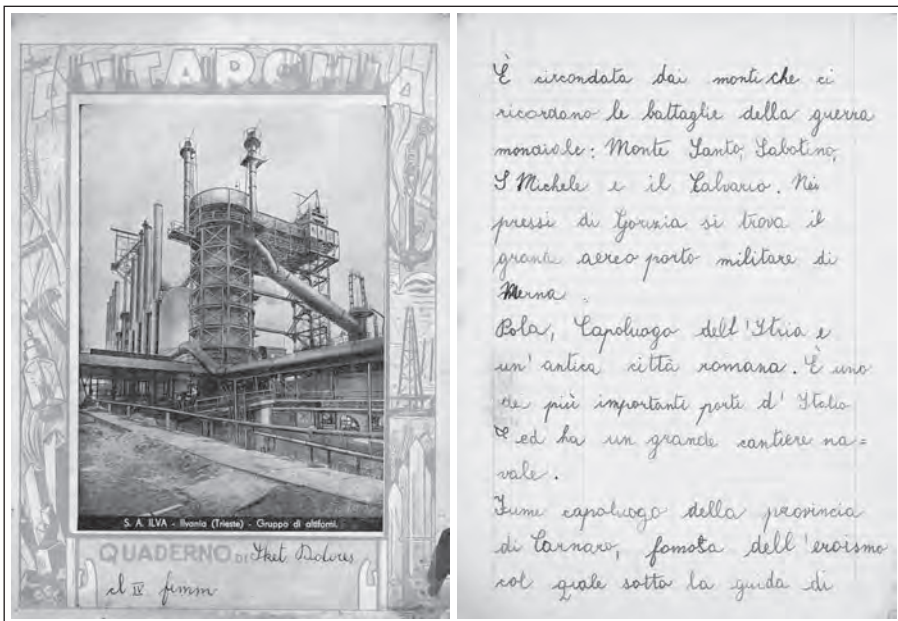 AUTARCHIA
S. A. ILVA - Ilvania (Trieste) - Gruppo di altiforni.
QUADERNO DI Sket Dolores
cl IV femm
È circondata dai monti che ci
ricordano le battaglie della guerra
mondiale: Monte Santo, Sabotino,
S Michele e il Calvario. Nei
pressi di Gorizia si trova il
grande aereo porto militare di
Merna.
Pola, Capoluogo dell'Istria e
un'antica città romana. È uno
de più importanti porti d'Italia
ed ha un grande cantiere na=
vale.
Fiume capoluogo della provincia
di Carnaro, famosa dell'eroismo
col quale sotto la guida di